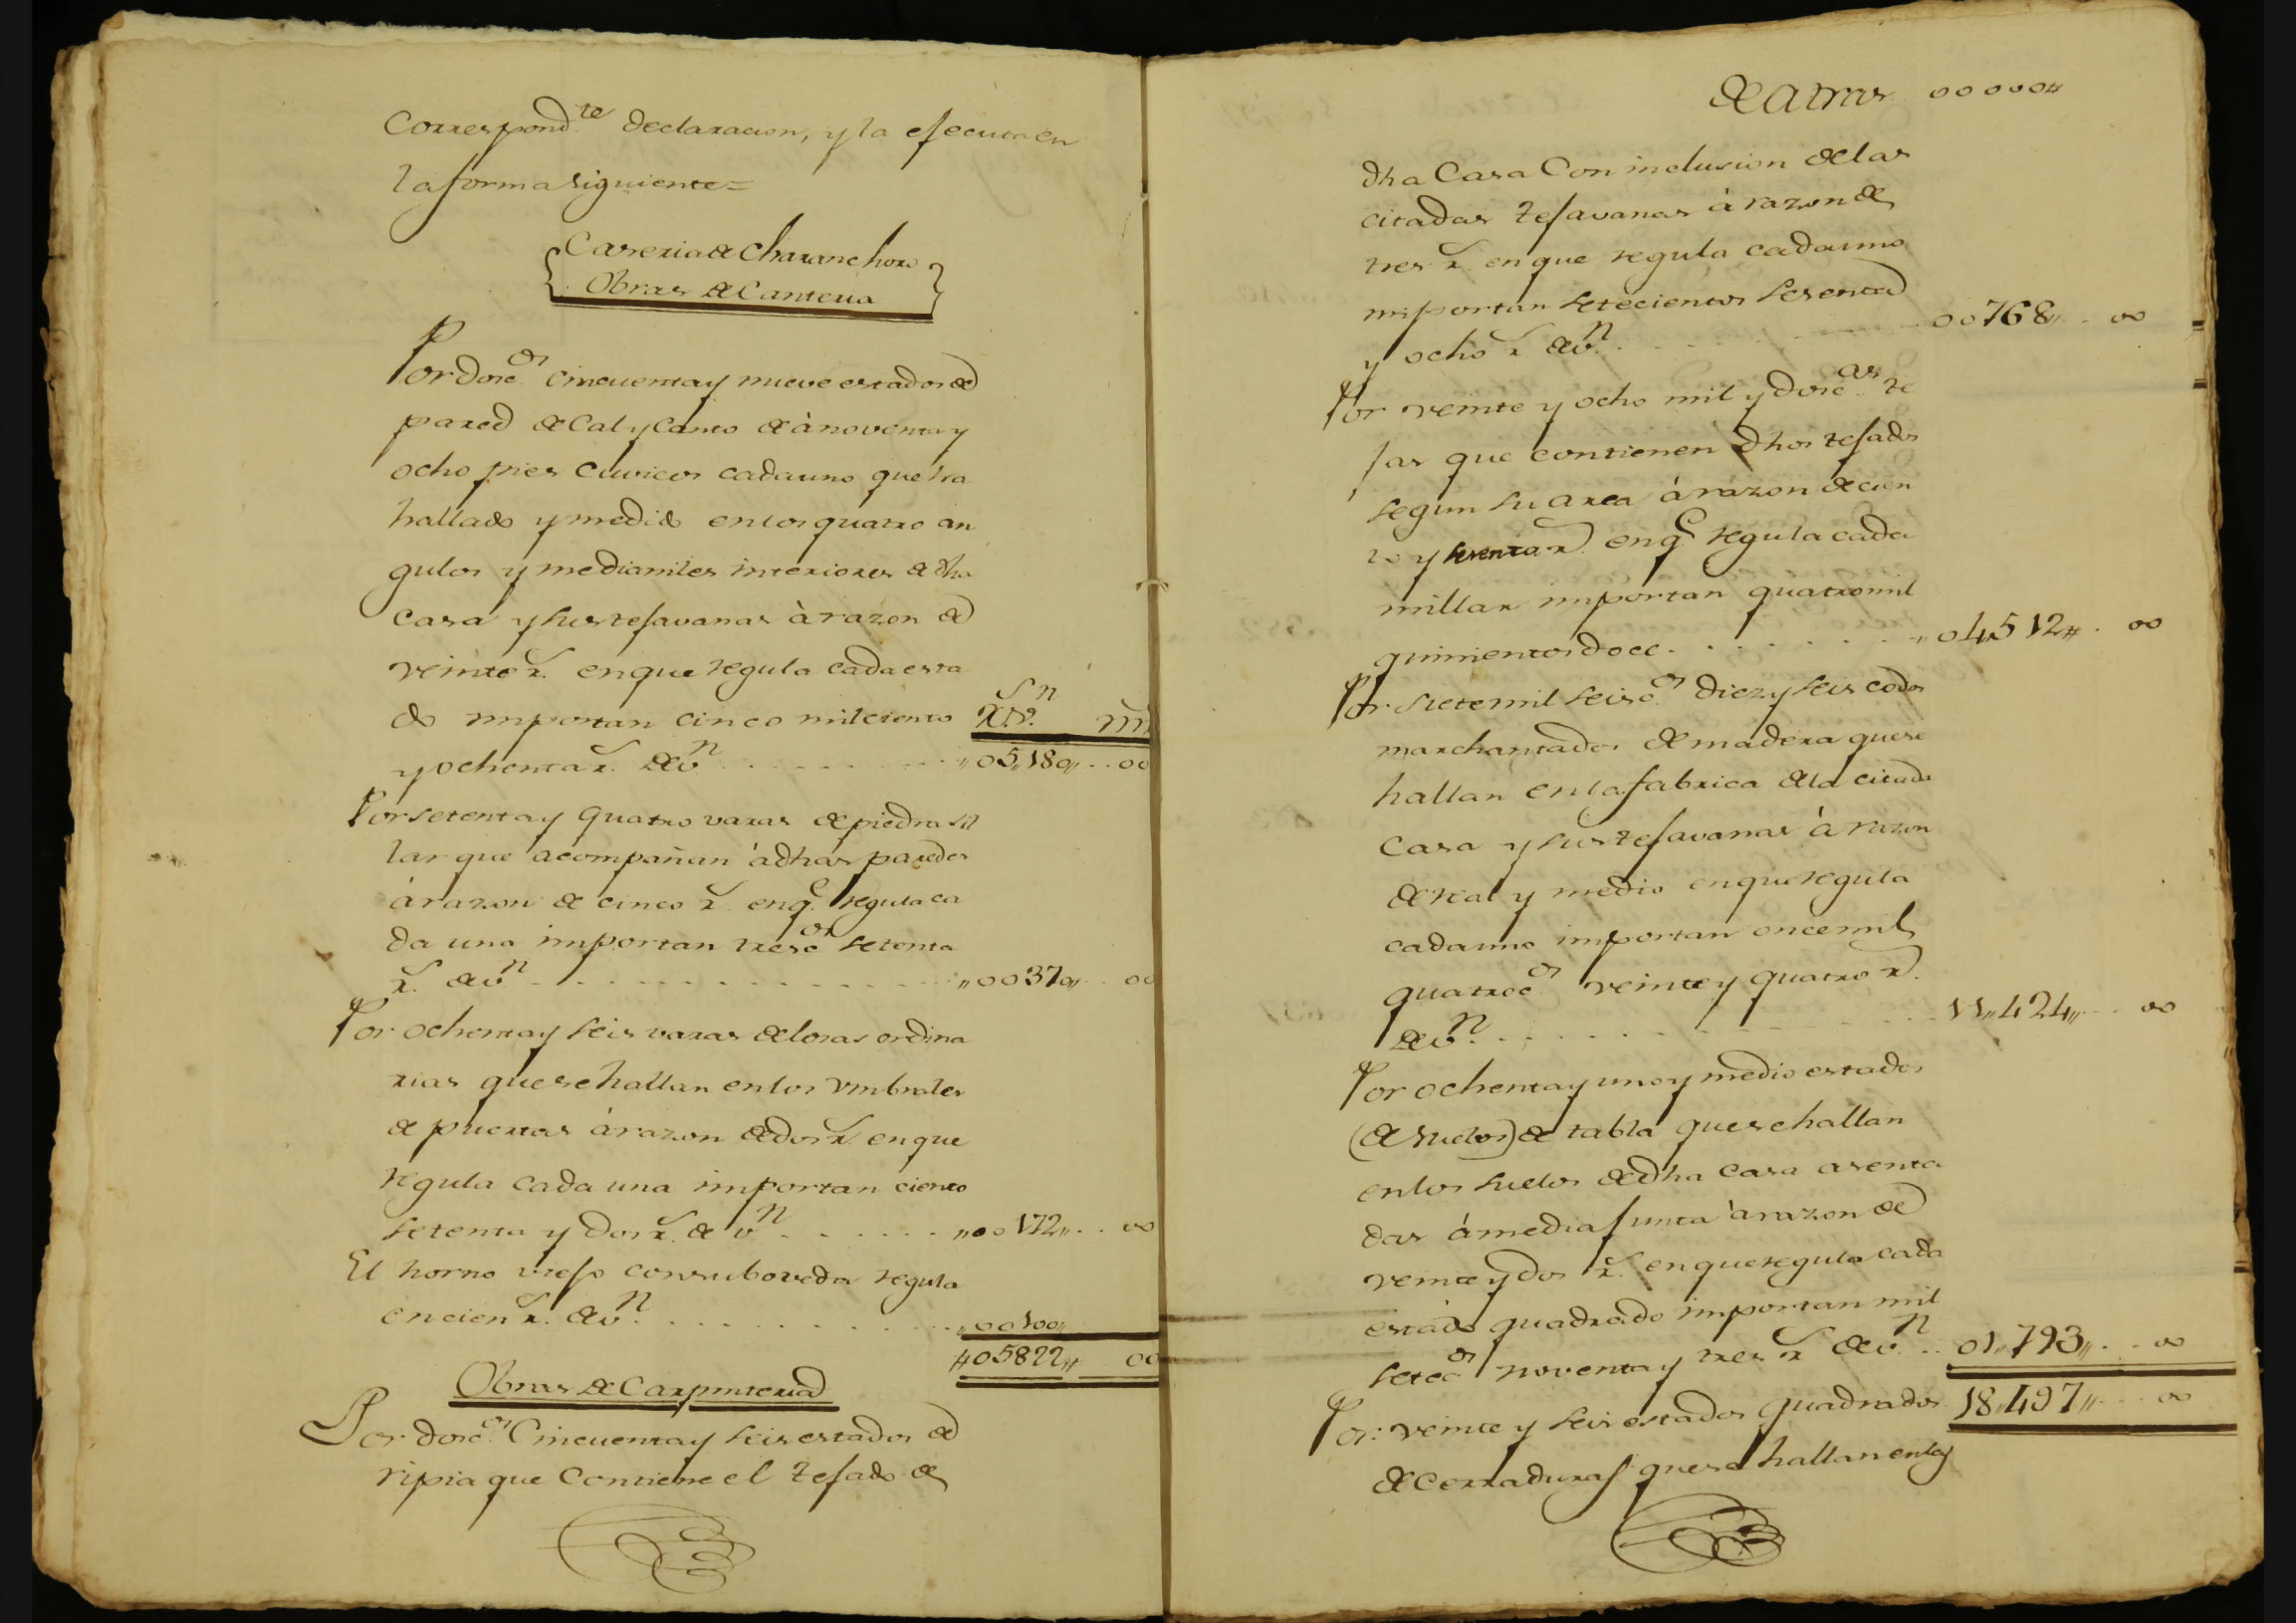 Correspond.te declaracion, y la efecuta en
la forma siguiente=
Caseria de Charanchoro
Obras de Canteria
Por dosc.os cincuenta y nueve estados de
pared de Cal y Canto de à noventa y
ocho pies Cuvicos cada uno que ha
hallado y medido en los quatro an
gulos y medianiles interiores de dha
Casa y sus tejavanas à razon de
veinte r.s en que regula cada esta
do importan cinco mil ciento R.s V.n m.s
y ochenta r.s de v.n . . . . . . . . . „05„180„ . . 00
Por setenta y quatro varas de piedra sil
lar que acompañan à dhas paredes
à razon de cinco r.s en q.e regula ca
da una importan tresc.os setenta
r.s de v.n . . . . . . . . . . . . . . . „00370„ . . 00
Por ochenta y seis varas de losas ordina
rias que se hallan en los Vmbrales
de puertas à razon de dos r.s en que
regula cada una importan ciento
setenta y dos r.s de v.n . . . . . . „00172„ . . 00
El horno viejo con su boveda regula
en cien r.s de v.n . . . . . . . . . . . „00100„
„05822„ 00
Obras de Carpinteria
Por dosc.os Cincuenta y seis estados de
ripia que Contiene el tejado de
De atras 00000„
dha Casa Con inclusion de las
citadas tejavanas à razon de
tres r.s en que regula cada uno
importan setecientos sesenta
y ocho r.s de v.n . . . . . . . . 00768„ . . 00
Por veinte y ocho mil y dosc.as te
jas que contienen dhos tejados
segun su area à razon de cien
to y sesenta r.s en q.e regula cada
millar importan quatro mil
quinientos doce . . . . . . . „04„512„ . 00
Por siete mil seisc.os diez y seis codos
marchantados de madera que se
hallan en la fabrica de la citada
Casa y sus tejavanas à razon
de real y medio en que regula
cada uno importan once mil
quatroc.os veinte y quatro r.s
de v.n . . . . . . . . . . . . . 11„424„ . . . 00
Por ochenta y uno y medio estados
(de suelos) de tabla que se hallan
en los suelos de dha casa asenta
das à media junta à razon de
veinte y dos r.s en que regula cada
estado quadrado importan mil
setec.os noventa y tres r.s de v.n . . 01„793„ . . 00
Por veinte y seis estados quadrados 18„497„ . . . 00
de cerraduras que se hallan en los